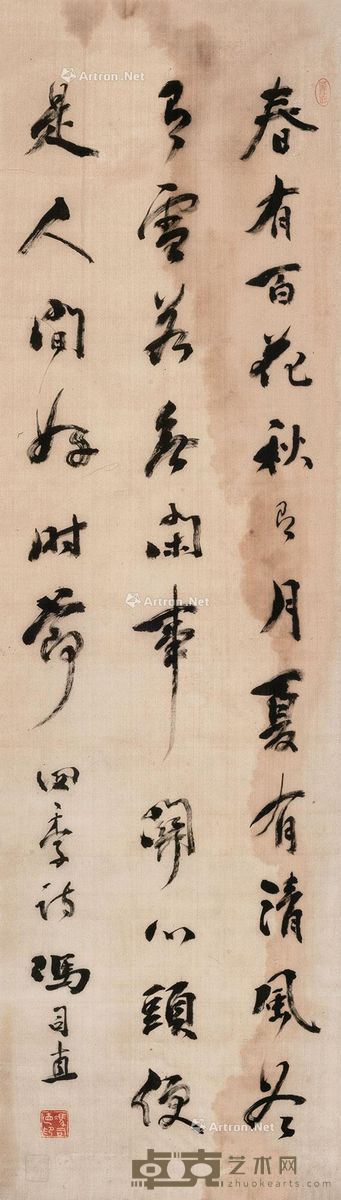 春有百花秋有月夏有清风冬
有雪若無闲事開心頭便
是人間好时節
四季诗 馮司直
Artron.Net
Artron.Net
Artron.Net
Artron.Net
卓克艺术网
www.zhuokearts.com